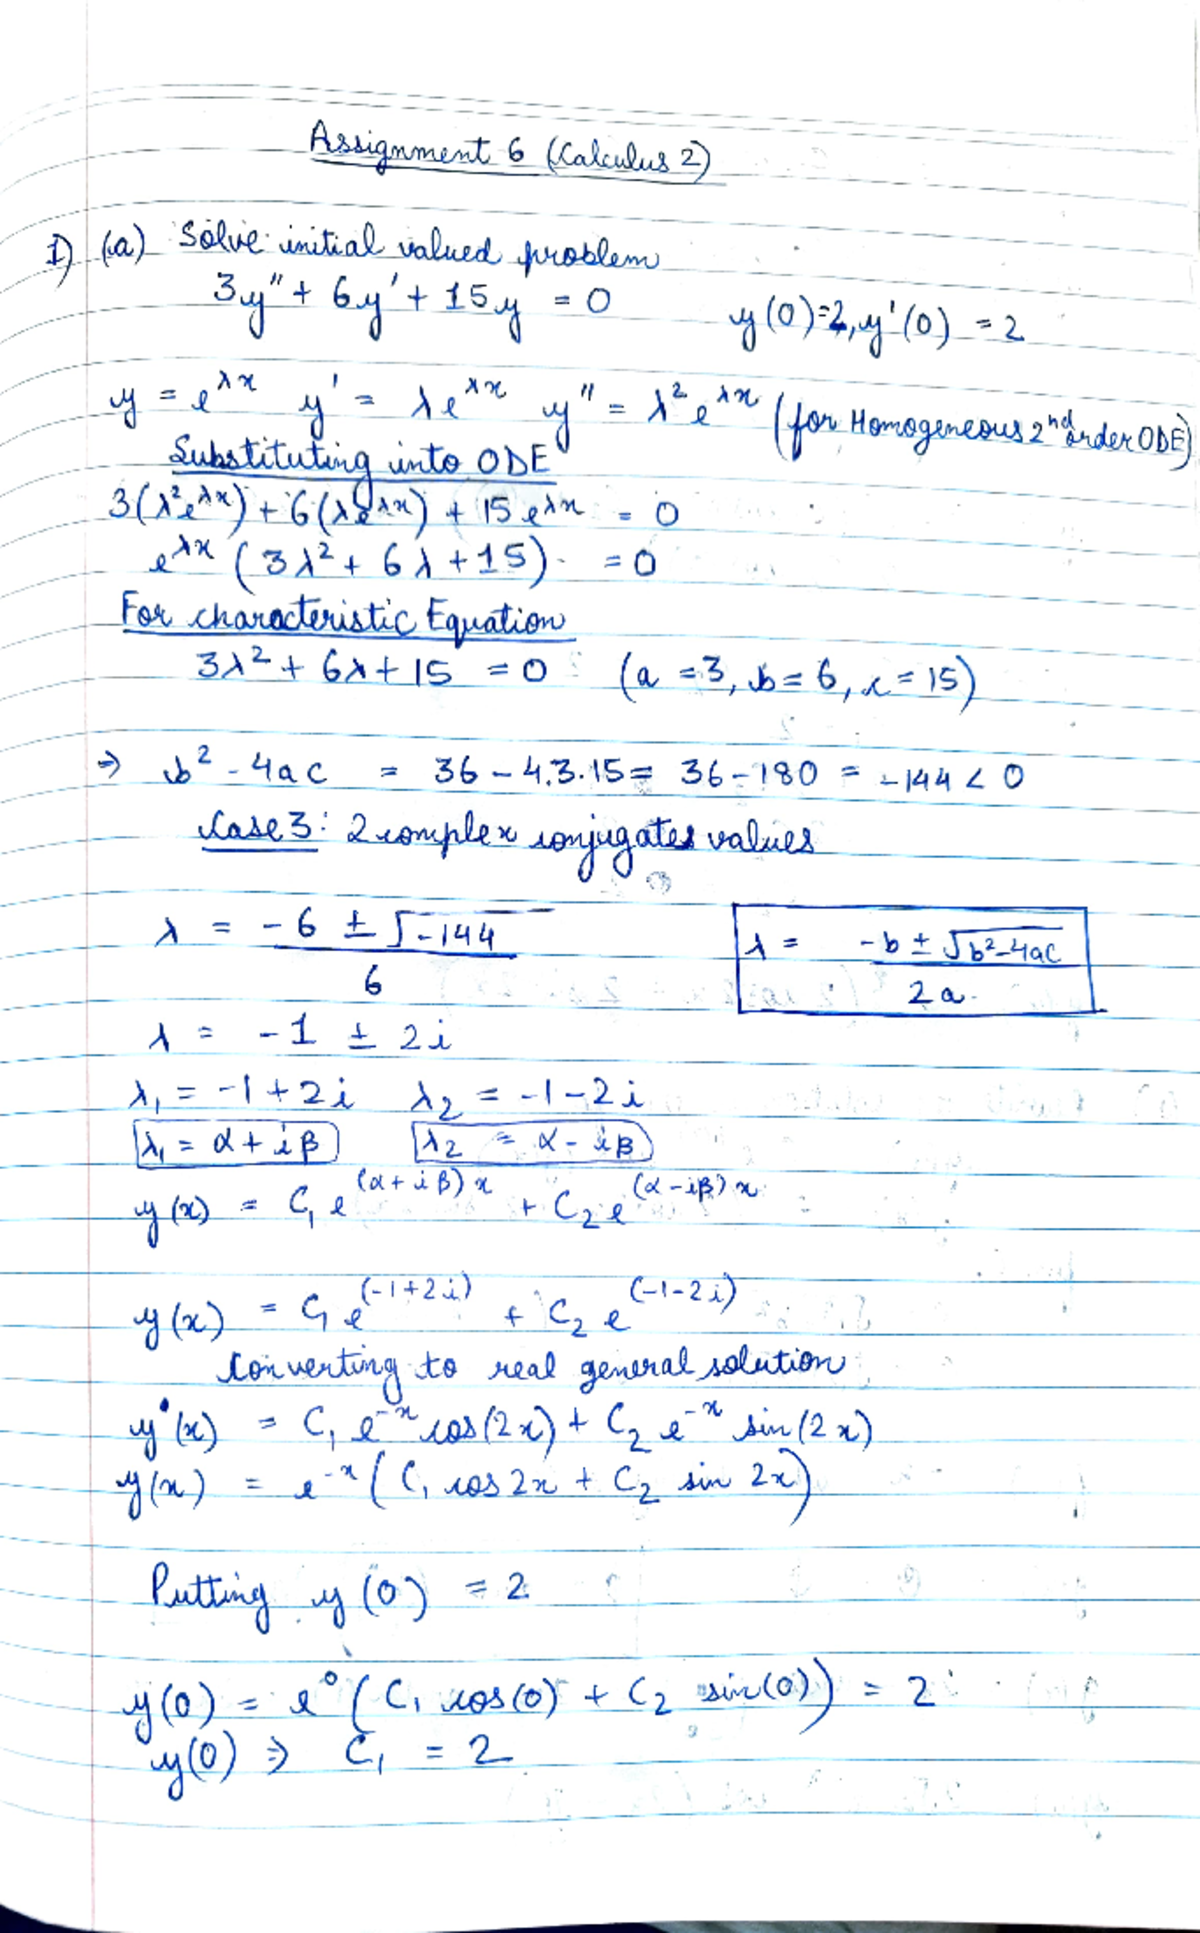 Assignment 6 (Calculus 2)
1) (a) Solve initial valued problem
3y" + 6y' + 15y = 0    y(0)=2, y'(0) = 2
y = e^λx  y' = λe^λx  y" = λ²e^λx (for Homogeneous 2nd order ODE)
Substituting into ODE
3(λ²e^λx) + 6(λe^λx) + 15e^λx = 0
e^λx (3λ² + 6λ + 15) = 0
For characteristic Equation
3λ² + 6λ + 15 = 0    (a = 3, b = 6, c = 15)
⇒ b² - 4ac = 36 - 4.3.15 = 36 - 180 = -144 < 0
Case 3: 2 complex conjugates values
λ = (-6 ± √-144) / 6    λ = (-b ± √b²-4ac) / 2a
λ = -1 ± 2i
λ₁ = -1 + 2i  λ₂ = -1 - 2i
λ₁ = α + iβ  λ₂ = α - iβ
y(x) = C₁e^(α+iβ)x + C₂e^(α-iβ)x
y(x) = C₁e^(-1+2i) + C₂e^(-1-2i)
Converting to real general solution
y(x) = C₁e^-x cos(2x) + C₂e^-x sin(2x)
y(x) = e^-x (C₁ cos 2x + C₂ sin 2x)
Putting y(0) = 2
y(0) = e⁰ (C₁ cos(0) + C₂ sin(0)) = 2
y(0) ⇒ C₁ = 2